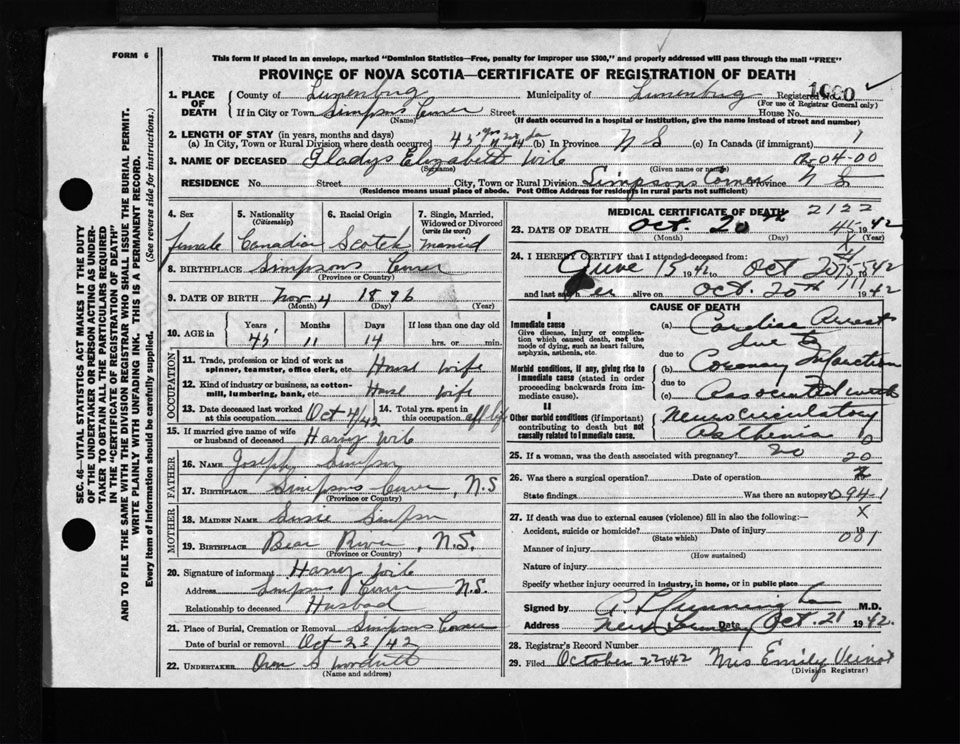 FORM 6
This form if placed in an envelope, marked "Dominion Statistics—Free, penalty for improper use $300," and properly addressed will pass through the mail "FREE"
PROVINCE OF NOVA SCOTIA—CERTIFICATE OF REGISTRATION OF DEATH
1. PLACE OF DEATH County of Lunenburg Municipality of Lunenburg Registered No.
(For use of Registrar General only)
If in City or Town Simpsons Corner Street House No.
(Name) (If death occurred in a hospital or institution, give the name instead of street and number)
2. LENGTH OF STAY (in years, months and days)
(a) In City, Town or Rural Division where death occurred 45 yrs (b) In Province N S (c) In Canada (if immigrant) 1
3. NAME OF DECEASED Gladys Elizabeth Wile 04-00
(Surname) (Given name or names)
RESIDENCE No. Street City, Town or Rural Division Simpsons Corner Province N S
(Residence means usual place of abode. Post Office Address for residents in rural parts not sufficient)
4. Sex female
5. Nationality (Citizenship) Canadian
6. Racial Origin Scotch
7. Single, Married, Widowed or Divorced (write the word) married
8. BIRTHPLACE Simpsons Corner
(Province or Country)
9. DATE OF BIRTH Nov 4 1896
(Month) (Day) (Year)
10. AGE in Years Months Days If less than one day old
45 11 14 hrs. or min.
OCCUPATION
11. Trade, profession or kind of work as spinner, teamster, office clerk, etc. House Wife
12. Kind of industry or business, as cotton-mill, lumbering, bank, etc. House Wife
13. Date deceased last worked at this occupation Oct 4/42 14. Total yrs. spent in this occupation
15. If married give name of wife or husband of deceased Harry Wile
FATHER
16. NAME Joseph Simpson
17. BIRTHPLACE Simpsons Corner, N.S
(Province or Country)
MOTHER
18. MAIDEN NAME Susie Simpson
19. BIRTHPLACE Bear River, N.S.
(Province or Country)
20. Signature of informant Harry Wile
Address Simpsons Corner N.S.
Relationship to deceased Husbad
21. Place of Burial, Cremation or Removal Simpsons Corner
Date of burial or removal Oct 23/42
22. UNDERTAKER Oren S
(Name and address)
MEDICAL CERTIFICATE OF DEATH 2122
23. DATE OF DEATH Oct. 20th 1942
(Month) (Day) (Year)
24. I HEREBY CERTIFY that I attended deceased from:
June 15 1942 to Oct 20 1942
and last saw her alive on Oct. 20th 1942
CAUSE OF DEATH
I
Immediate cause
Give disease, injury or complication which caused death, not the mode of dying, such as heart failure, asphyxia, asthenia, etc.
(a) Cardiac Arrest
due to
Morbid conditions, if any, giving rise to immediate cause (stated in order proceeding backwards from immediate cause).
due to (b) Coronary Infarction
due to (c) Associated with
II
Other morbid conditions (if important) contributing to death but not causally related to immediate cause.
Neurocirculatory Asthenia
25. If a woman, was the death associated with pregnancy? 20
26. Was there a surgical operation? Date of operation
State findings Was there an autopsy? 094-1
27. If death was due to external causes (violence) fill in also the following:— X
Accident, suicide or homicide? Date of injury 19
(State which) 001
Manner of injury
(How sustained)
Nature of injury
Specify whether injury occurred in industry, in home, or in public place
Signed by M.D.
Address New Date Oct. 21 1942.
28. Registrar's Record Number
29. Filed October 22 1942 Mrs Emily Veinot
(Division Registrar)
SEC. 46—VITAL STATISTICS ACT MAKES IT THE DUTY
OF THE UNDERTAKER OR PERSON ACTING AS UNDER-
TAKER TO OBTAIN ALL THE PARTICULARS REQUIRED
IN THE "CERTIFICATE OF REGISTRATION OF DEATH"
AND TO FILE THE SAME WITH THE DIVISION REGISTRAR WHO SHALL ISSUE THE BURIAL PERMIT.
WRITE PLAINLY WITH UNFADING INK. THIS IS A PERMANENT RECORD.
Every item of information should be carefully supplied. (See reverse side for instructions.)